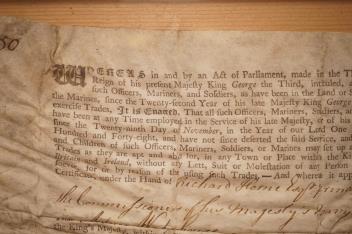 50
WHEREAS in and by an Act of Parliament, made in the Th
Reign of his present Majesty King George the Third, intituled, a
such Officers, Mariners, and Soldiers, as have been in the Land or S
the Mariners, since the Twenty-second Year of his late Majesty King George
exercise Trades, It is Enacted, That all such Officers, Mariners, Soldiers, a
have been at any Time employed in the Service of his late Majesty, or of his
since the Twenty-ninth Day of November, in the Year of our Lord One
Hundred and Forty-eight, and have not since deserted the said Service, and
and Children of such Officers, Mariners, Soldiers, or Mariners may set up a
Trades as they are apt and able for, in any Town or Place within the K
Britain and Ireland, without any Lett, Suit or Molestation of any Person
for or by reason of the using such Trades,—And wherein it appe
Certificates under the Hand of Richard
the Commissioners of his Majesty's
the King's Majesty,